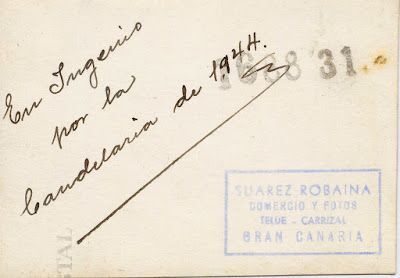 En Ingenio
por la
Candelaria de 1944.
1688 31
SUAREZ ROBAINA
COMERCIO Y FOTOS
TELDE - CARRIZAL
GRAN CANARIA